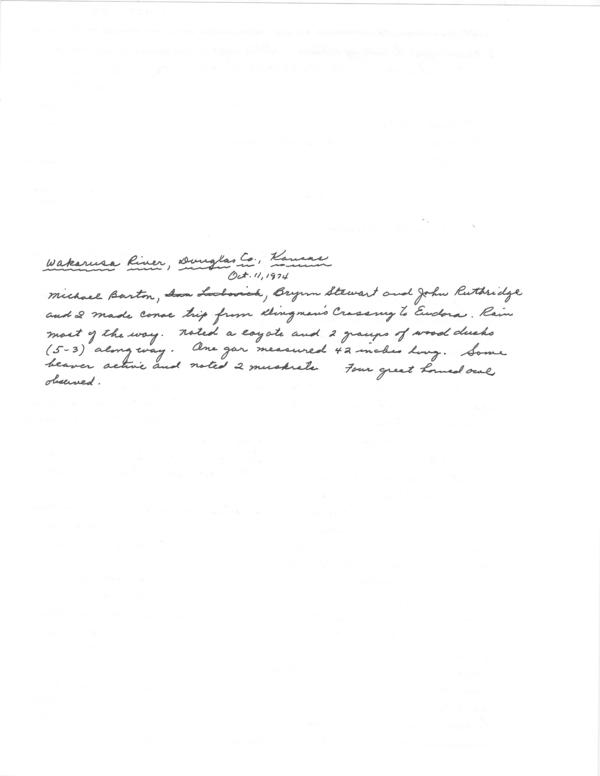 Wakarusa River, Douglas Co., Kansas
Oct. 11, 1974
Michael Barton, Brynn Stewart and John Ruthridge
and I made conoe trip from Dingman's Crossing to Eudora. Rain
most of the way. noted a coyote and 2 groups of wood ducks
(5-3) along way. One gar measured 42 inches long. Some
beaver active and noted 2 muskrats Four great horned owl
observed.